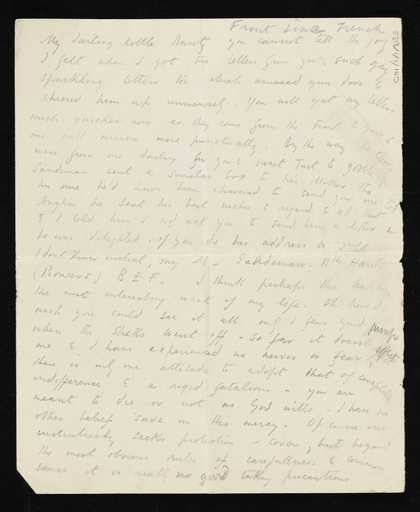 Front Trench
My darling little you cannot tell the joy
I felt when I got two letters from you, such gay
sparkling letters too which amused your dear &
cheered him up immensely. You will get my letters
much quicker now as they come from the Front & yours to
me will arrive more punctually. By the way the
were from me darling for your sweet self to gobble.
Sandeman sent a similar box to his Mother the
he said he'd have been charmed to send you one
he sent his best wishes & regards to all
& I told him I'd ask you to send him a letter
he was delighted. If you do his address is 2nd Lt
I don't know initial, my dd - Sandeman. 11th Hants
(Pioneers) B.E.F. I think perhaps this has been
the most interesting week of my life. I
wish you could see it all only I fear you
when the shells went off - So far it doesn't affect
me & I have experienced no nerves or fear,
there is only one attitude to adopt that of complete
indifference & a rigid fatalism - you are
meant to die or not as God wills. I have no
other belief save in His mercy. Of course one
instinctively seeks protection - cover, but beyond
the most obvious rules of carefulness & common
sense it is really no good taking precautions